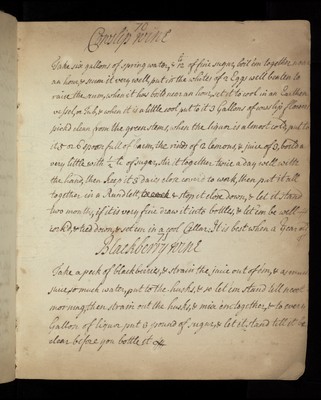 Cowslip Wine
Take six gallons of spring water, & of fine sugar, boil em together
an hour, & scum it very well, put in the whites of 2 Eggs well beaten to
raise the scum, when it has boild near an hour, set it to cool in an Earthen
vessel, or Tub, & when it is a little cool, put to it 3 Gallons of cowslip flowers
pickd clean from the green stems, when the liquor is almost cold, put to
it 5 or 6 spoon full of barm, the rinds of 12 lemons, & juice of 3, boild a
very little with of sugar, stir it together twice a day well with
the hand, then keep it 5 days close cover'd to work, then put it all
together in a Rundlett, & stop it close down, & let it stand
two months, if it is very fine draw it into bottles, & let em be well
corkd, & tied down, & set em in a cool Cellar. It is best when a year old
Blackberry wine
Take a peck of blackberries, & strain the juice out of em, & as
much water, put to the husks, & so let em stand till next
morning, then strain out the husks, & mix em together, & to every
Gallon of liquor put 3 pound of sugar, & let it stand till it be
clear before you bottle it